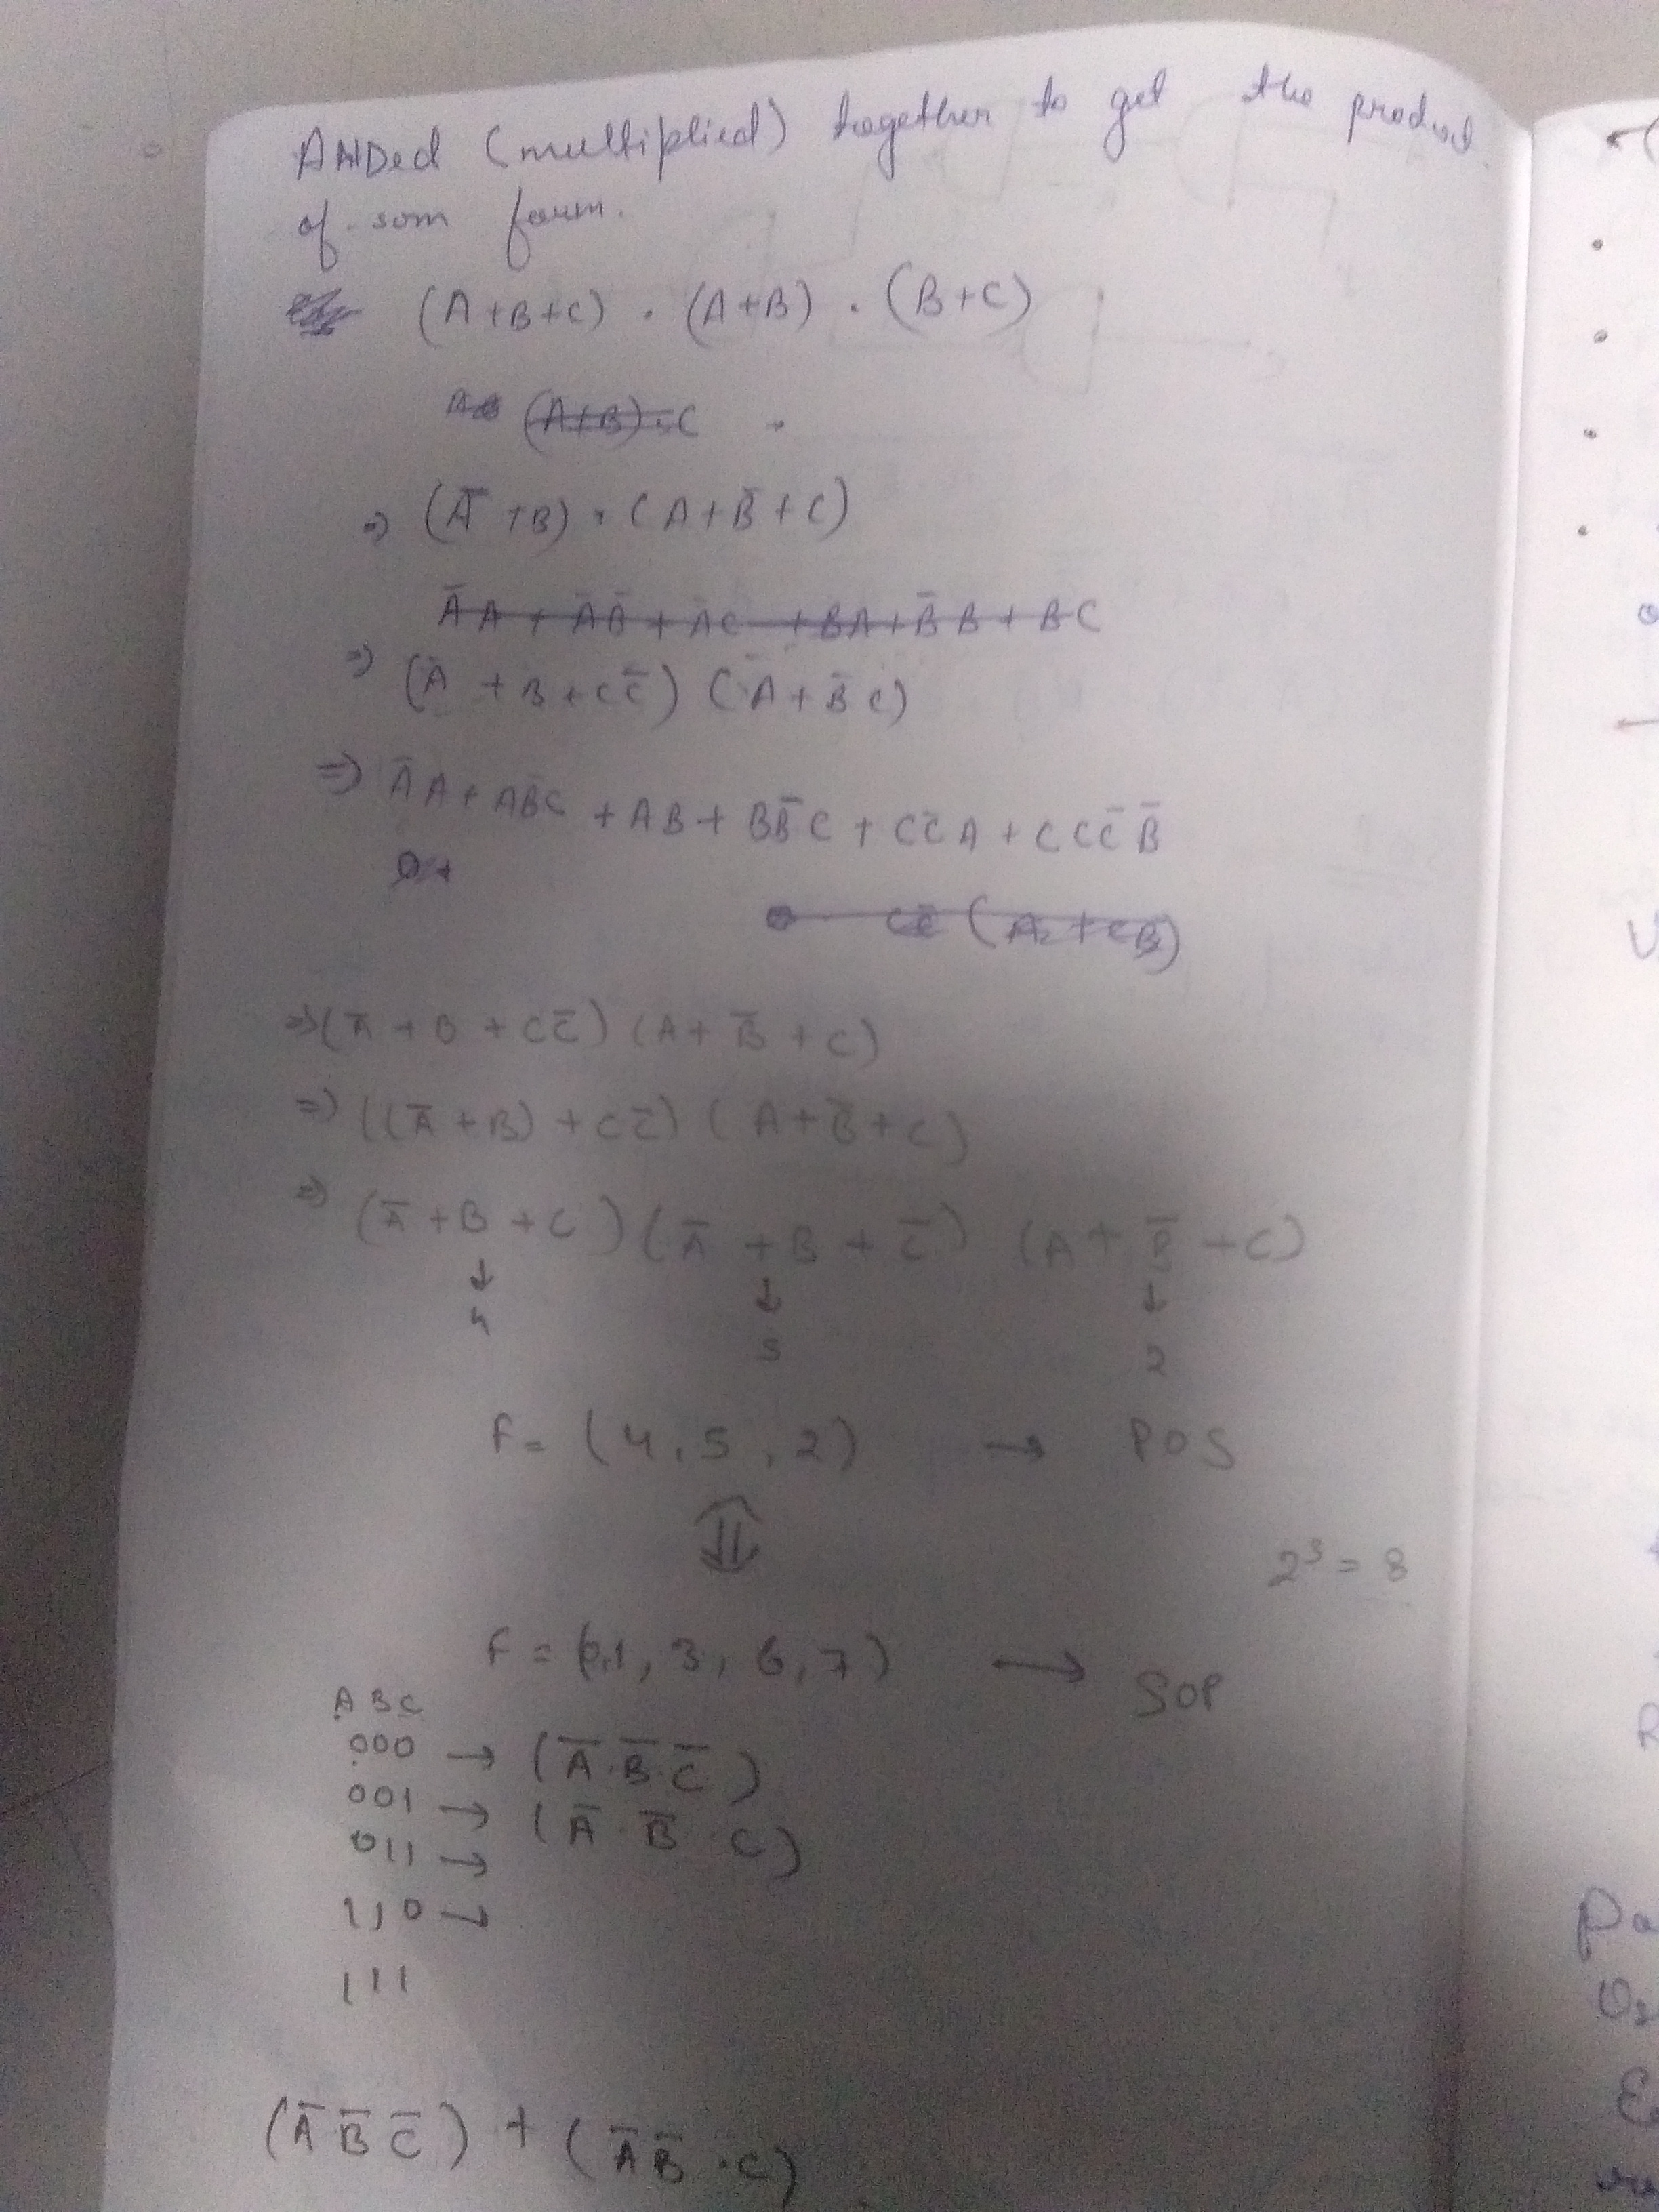 ANDed (multiplied) together to get the product
of som form.
(A+B+C) . (A+B) . (B+C)
(A+B).C
⇒ (A̅ +B) . (A+B̅+C)
A̅A + A̅B̅ + A̅C + BA + B̅B + BC
⇒ (A̅ + B + CC̅) (A + B̅C)
⇒ A̅A + AB̅C + AB + BB̅C + CC̅A + CCC̅B̅
0+
CC̅ (A + CB)
⇒ (A̅ + B + CC̅) (A + B̅ + C)
⇒ ((A̅ + B) + CC̅) (A + B̅ + C)
⇒ (A̅ + B + C) (A̅ + B + C̅) (A + B̅ + C)
↓ ↓ ↓
4 5 2
F = (4, 5, 2) → POS
⇕
2³ = 8
F = (0,1, 3, 6, 7) → SOP
A B C
000 → (A̅.B̅.C̅)
001 → (A̅.B̅.C)
011 →
110 →
111
(A̅ B̅ C̅) + (A̅ B̅ .C)